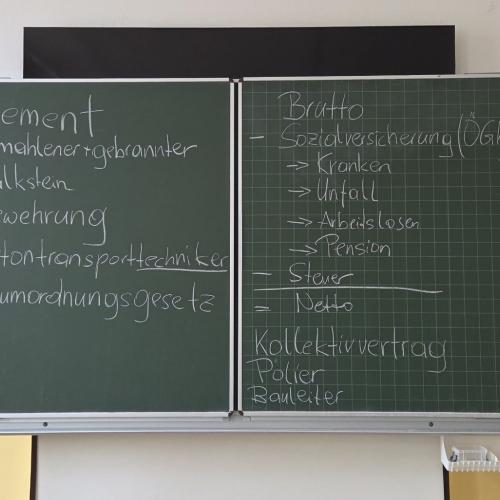 ement
mahlener + gebrannter
alkstein
ewehrung
tontransporttechniker
umordnungsgesetz
Brutto
- Sozialversicherung (ÖGK
→ Kranken
→ Unfall
→ Arbeitslosen
→ Pension
- Steuer
= Netto
Kollektivvertrag
Polier
Bauleiter